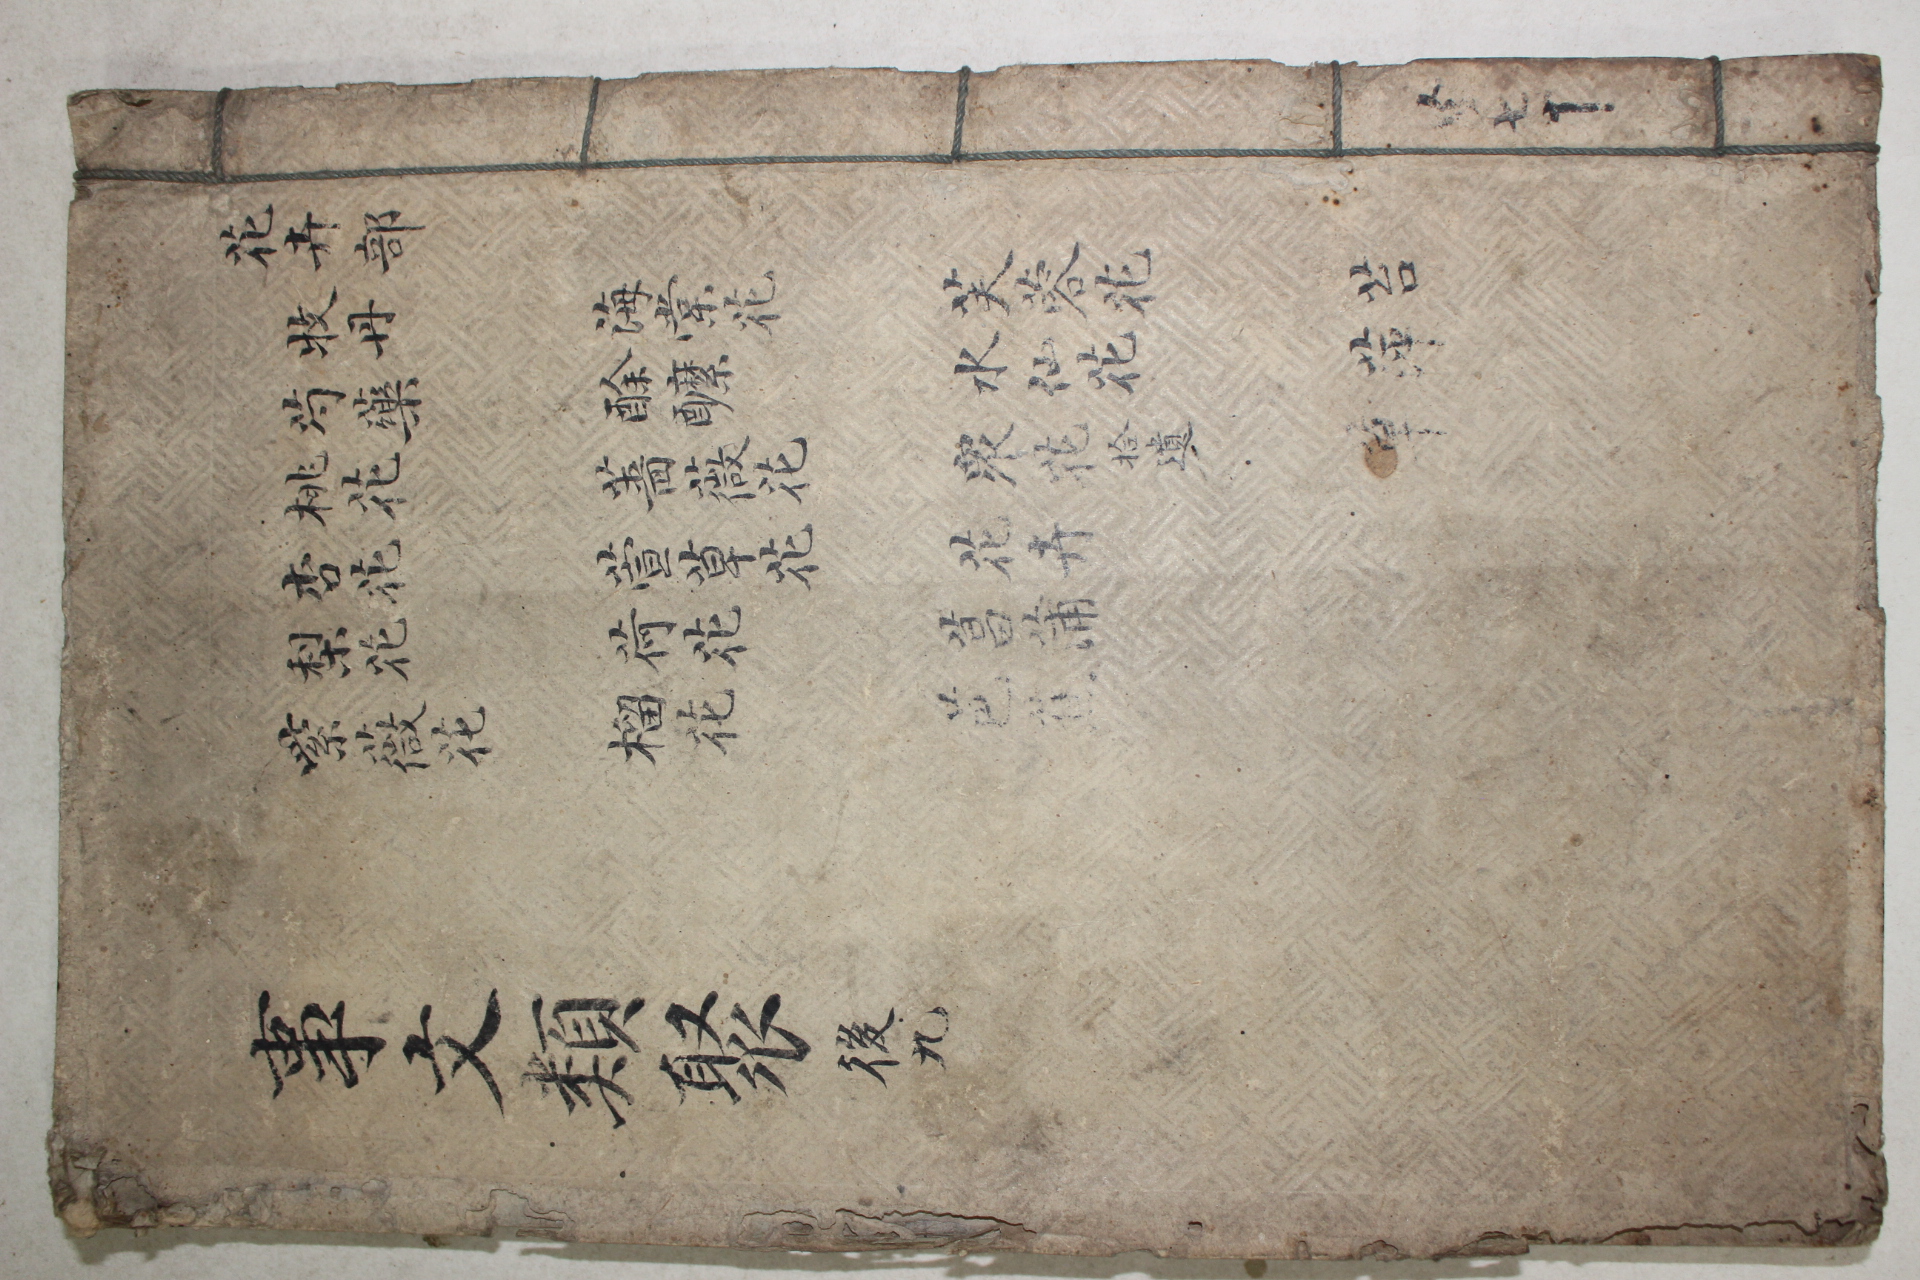 花卉部
牧丹
芍藥
桃花
杏花
梨花
紫薇花
海棠花
酴醾
薔薇花
萱草花
荷花
榴花
芙蓉花
水仙花
衆花拾遺
花卉
菖蒲
芭蕉
苔
萍
草
事文類聚 後九